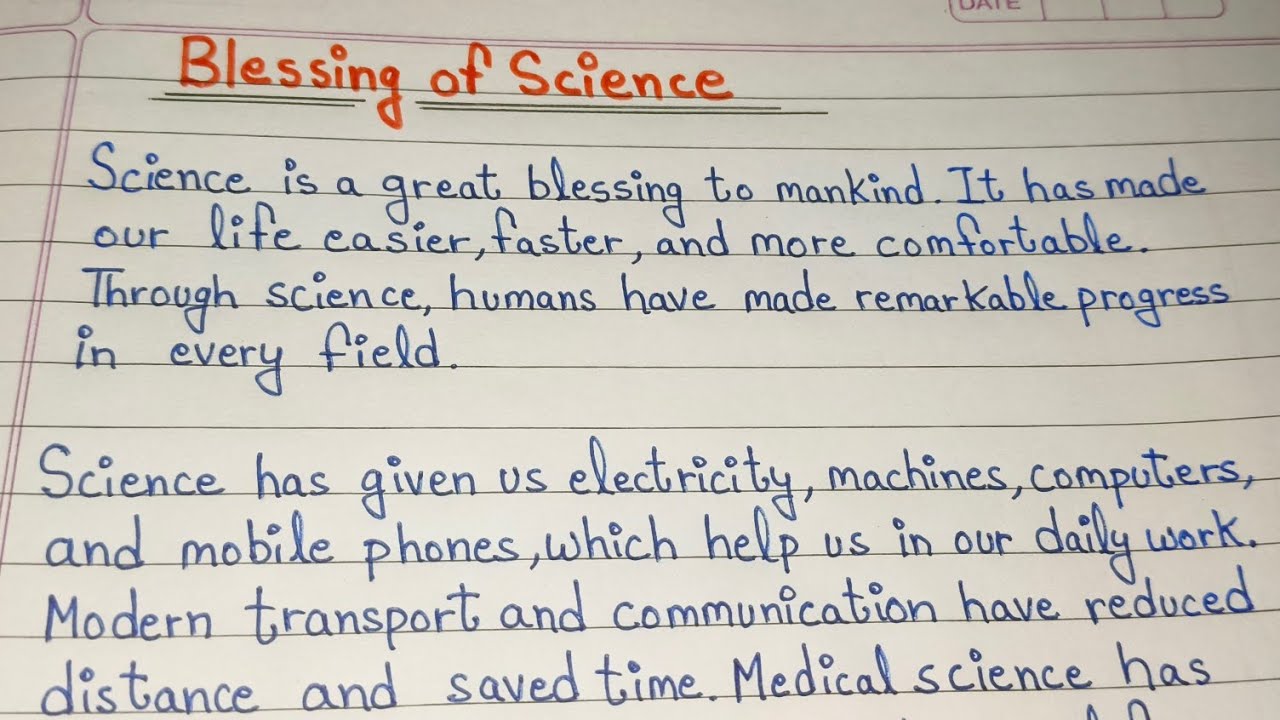 DATE
Blessing of Science
Science is a great blessing to mankind. It has made
our life easier, faster, and more comfortable.
Through science, humans have made remarkable progress
in every field.
Science has given us electricity, machines, computers,
and mobile phones, which help us in our daily work.
Modern transport and communication have reduced
distance and saved time. Medical science has